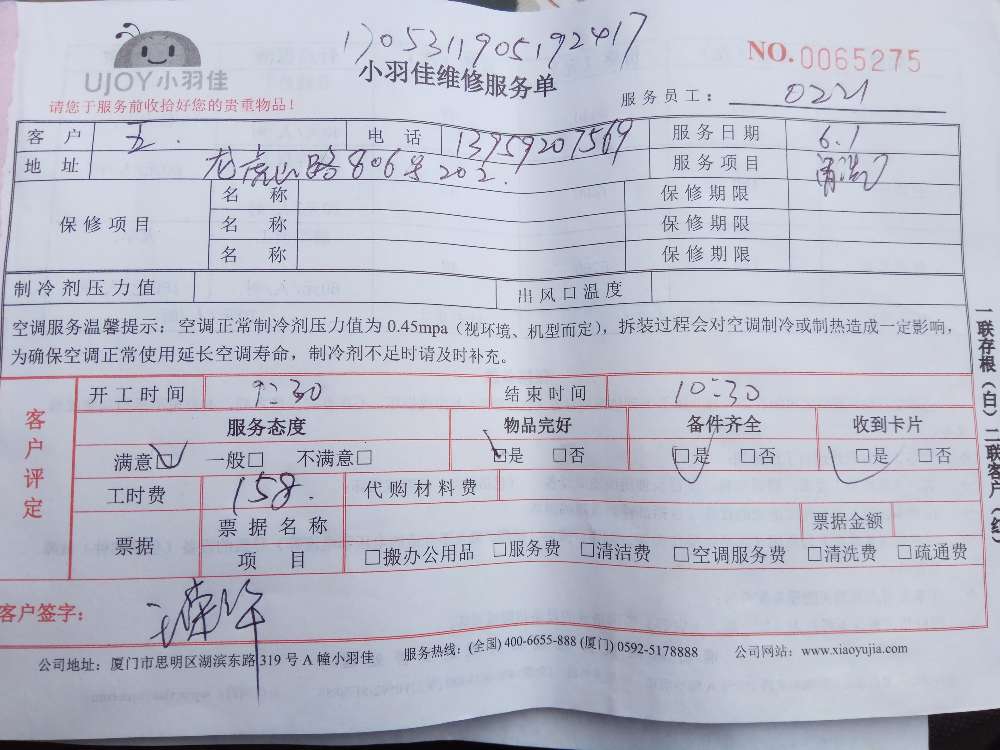 1705311905192417
UJOY小羽佳
小羽佳维修服务单
NO.0065275
请您于服务前收拾好您的贵重物品！
服务员工： 0221
客户 王. 电话 13959207569 服务日期 6.1
地址 龙虎山路806号202. 服务项目 清洗
保修项目 名称 保修期限
名称 保修期限
名称 保修期限
制冷剂压力值 出风口温度
空调服务温馨提示：空调正常制冷剂压力值为 0.45mpa（视环境、机型而定），拆装过程会对空调制冷或制热造成一定影响，
为确保空调正常使用延长空调寿命，制冷剂不足时请及时补充。
客户评定
开工时间 9:30 结束时间 10:30
服务态度 物品完好 备件齐全 收到卡片
满意□ 一般□ 不满意□ □是 □否 □是 □否 □是 □否
工时费 158. 代购材料费
票据 票据名称 票据金额
项目 □搬办公用品 □服务费 □清洁费 □空调服务费 □清洗费 □疏通费
客户签字：
公司地址：厦门市思明区湖滨东路 319 号 A 幢小羽佳 服务热线：(全国) 400-6655-888 (厦门) 0592-5178888 公司网站：www.xiaoyujia.com
一联存根（白）二联客户（红）